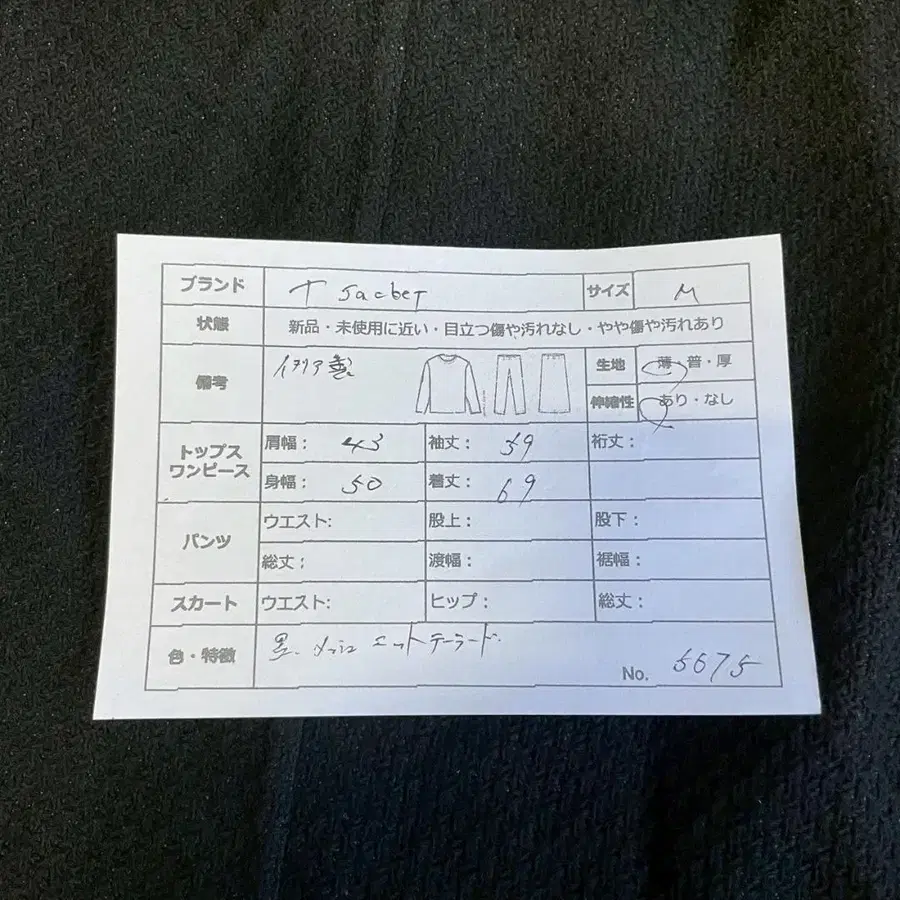 ブランド T Jacket サイズ M
状態 新品・未使用に近い・目立つ傷や汚れなし・やや傷や汚れあり
備考 イタリア製 生地 薄・普・厚
伸縮性 あり・なし
トップス ワンピース 肩幅: 43 袖丈: 59 裄丈:
身幅: 50 着丈: 69
パンツ ウエスト: 股上: 股下:
総丈; 渡幅: 裾幅:
スカート ウエスト: ヒップ: 総丈:
色・特徴 黒 メッシュ ニット テーラード
No. 5675